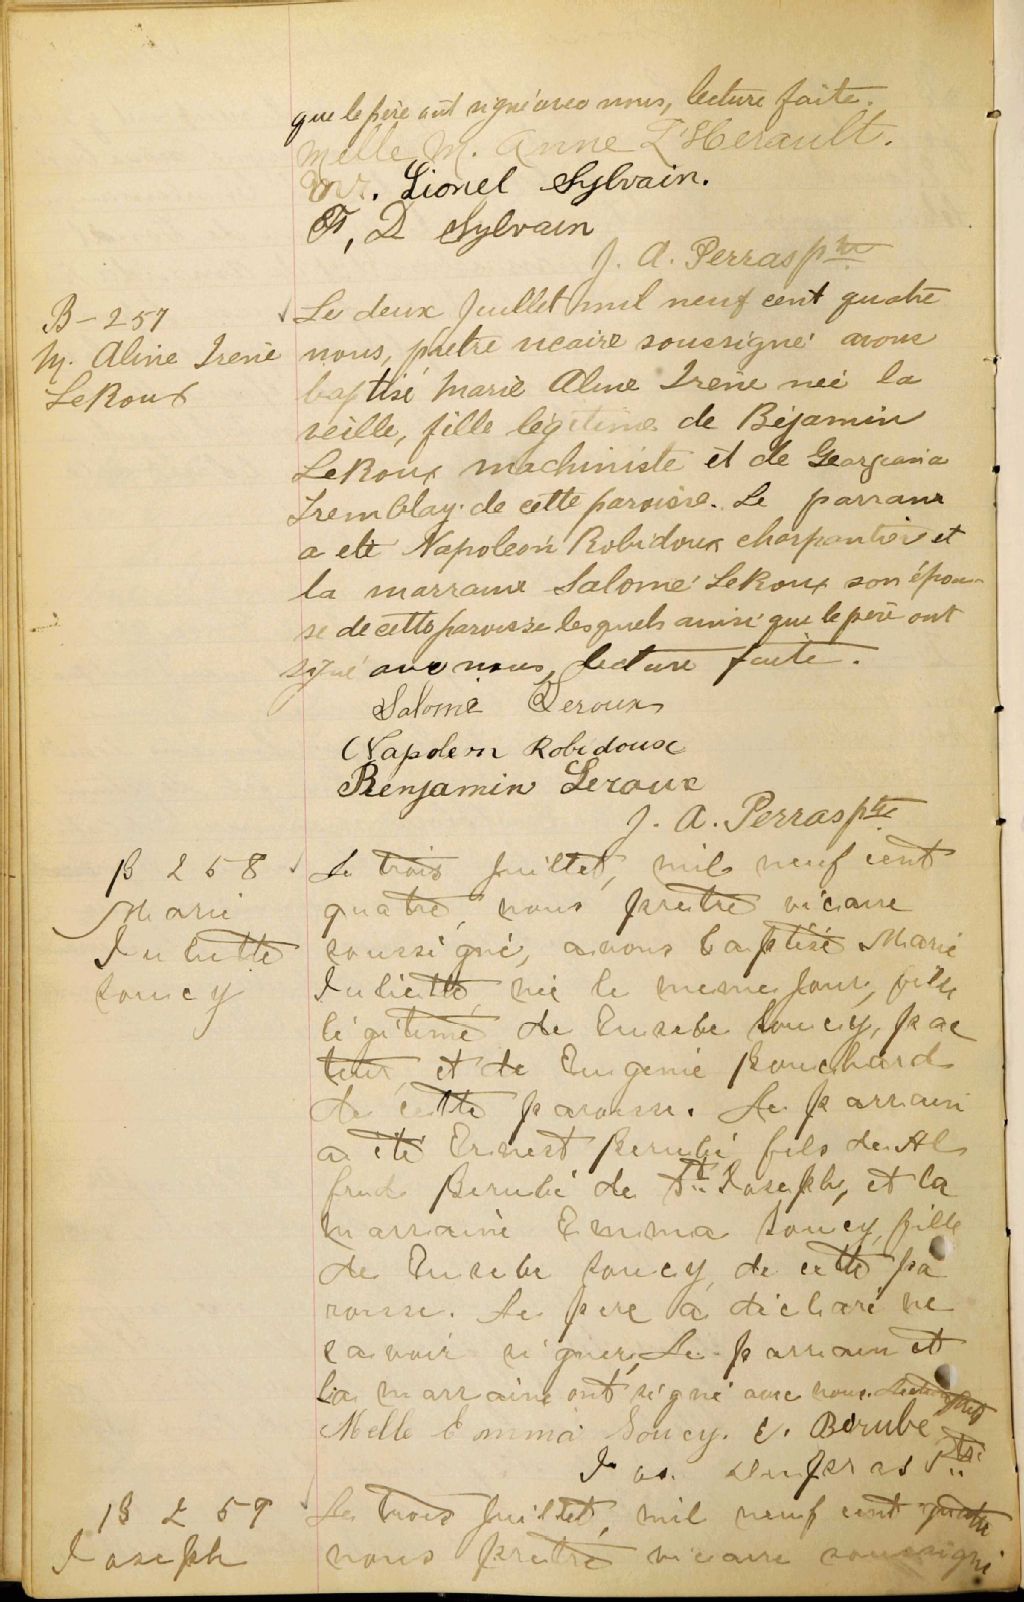 que le père ont signé avec nous, lecture faite.
Melle M. Anne L'Herault.
Mr. Lionel Sylvain.
F, D Sylvain
J. A. Perras ptre
B-257
M. Aline Irene
LeRoux
Le deux Juillet mil neuf cent quatre
nous, prêtre vicaire soussigné avons
baptisé Marie Aline Irene née la
veille, fille légitime de Béjamin
LeRoux machiniste et de Georgiana
Tremblay de cette paroisse. Le parrain
a été Napoleon Robidoux charpentier et
la marraine Salomé LeRoux son épou-
se de cette paroisse lesquels ainsi que le père ont
signé avec nous, lecture faite.
Salomé Leroux
Napoleon Robidoux
Benjamin Leroux
J. A. Perras ptre
B 258
Marie
Juliette
Soucy
Le trois Juillet, mil neuf cent
quatre, nous prêtre vicaire
soussigné, avons baptisé Marie
Juliette, née le meme jour, fille
légitime de Eusebe Soucy, pac
teur, et de Eugenie Bouchard
de cette paroisse. Le parrain
a été Ernest Berubé fils de Al
fred Berubé de St Joseph, et la
marraine Emma Soucy, fille
de Eusebe Soucy, de cette pa
roisse. Le pere a déclaré ne
savoir signer, Le parrain et
la marraine ont signé avec nous. Lecture faite
Melle Emma Soucy. E. Berube
Jos. ptre
B 259
Joseph
Le trois Juillet, mil neuf cent quatre
nous prêtre vicaire soussigné